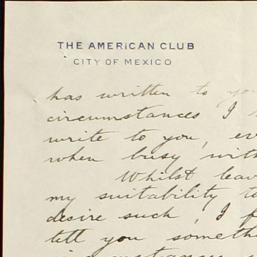 THE AMERICAN CLUB
CITY OF MEXICO
has written to you
circumstances I
write to you, ev
when busy with
Whilst leav
my suitability to
desire such, I f
tell you someth